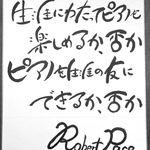 生涯にわたってピアノを
楽しめるか、否か
ピアノを生涯の友に
できるか、否か
Robert Pace